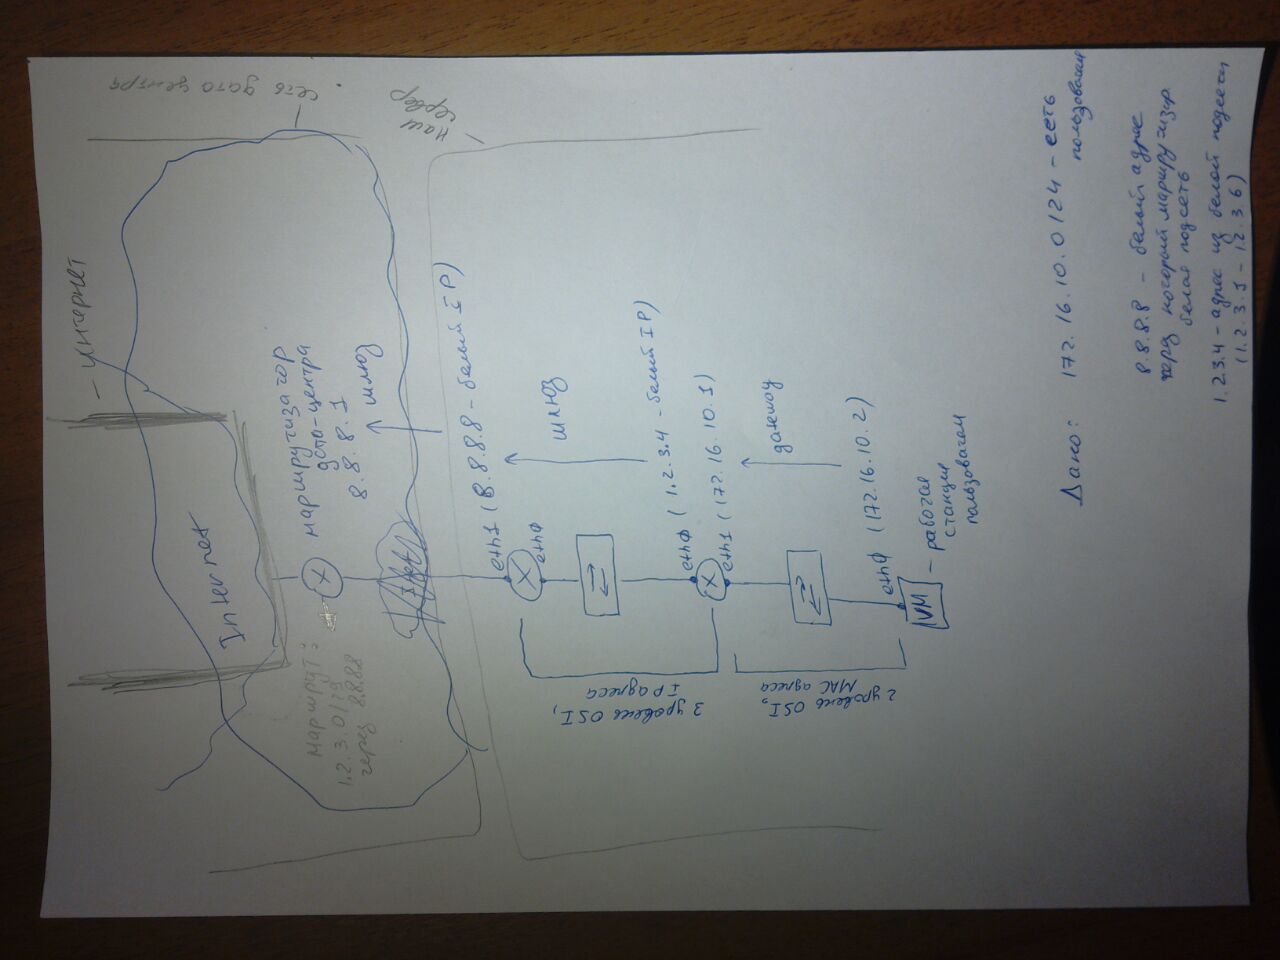 — интернет
. сеть дата центра
Internet
маршрутизатор
дата-центра
8.8.8.1
шлюз
маршрут:
1.2.3.0/29
через 8.8.8.8
Наш
сервер
eth1 (8.8.8.8 - белый IP)
eth0
шлюз
eth0 (1.2.3.4 - белый IP)
eth1 (172.16.10.1)
3 уровень OSI,
IP адреса
eth0 (172.16.10.2)
VM
- рабочая
станция
пользователя
2 уровень OSI,
MAC адреса
Дано:
172.16.10.0/24 - сеть
пользователя
8.8.8.8 - белый адрес
через который маршрутизир.
белая подсеть
1.2.3.4 - адрес из белой подсети
(1.2.3.1 - 1.2.3.6)